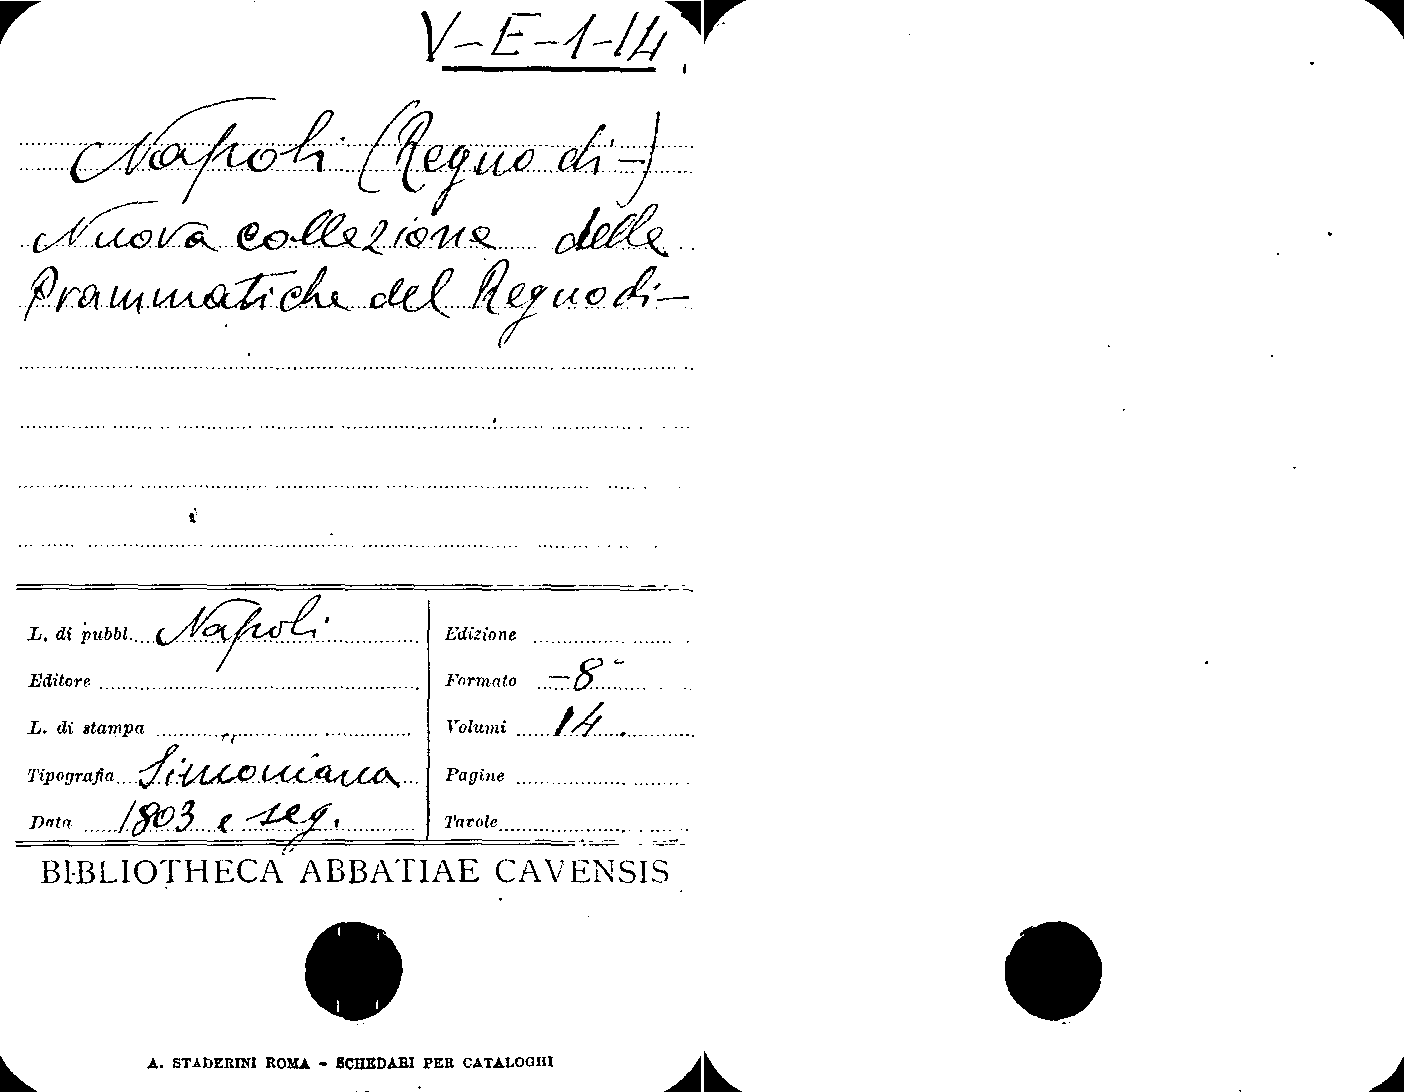 V-E-1-14
Napoli (Regno di -)
Nuova collezione delle
Prammatiche del Regno di -
L. di pubbl. Napoli
Editore
L. di stampa
Tipografia Simoniana
Data 1803 e seg.
Edizione
Formato -8°
Volumi 14.
Pagine
Tavole
BIBLIOTHECA ABBATIAE CAVENSIS
A. STADERINI ROMA - SCHEDARI PER CATALOGHI